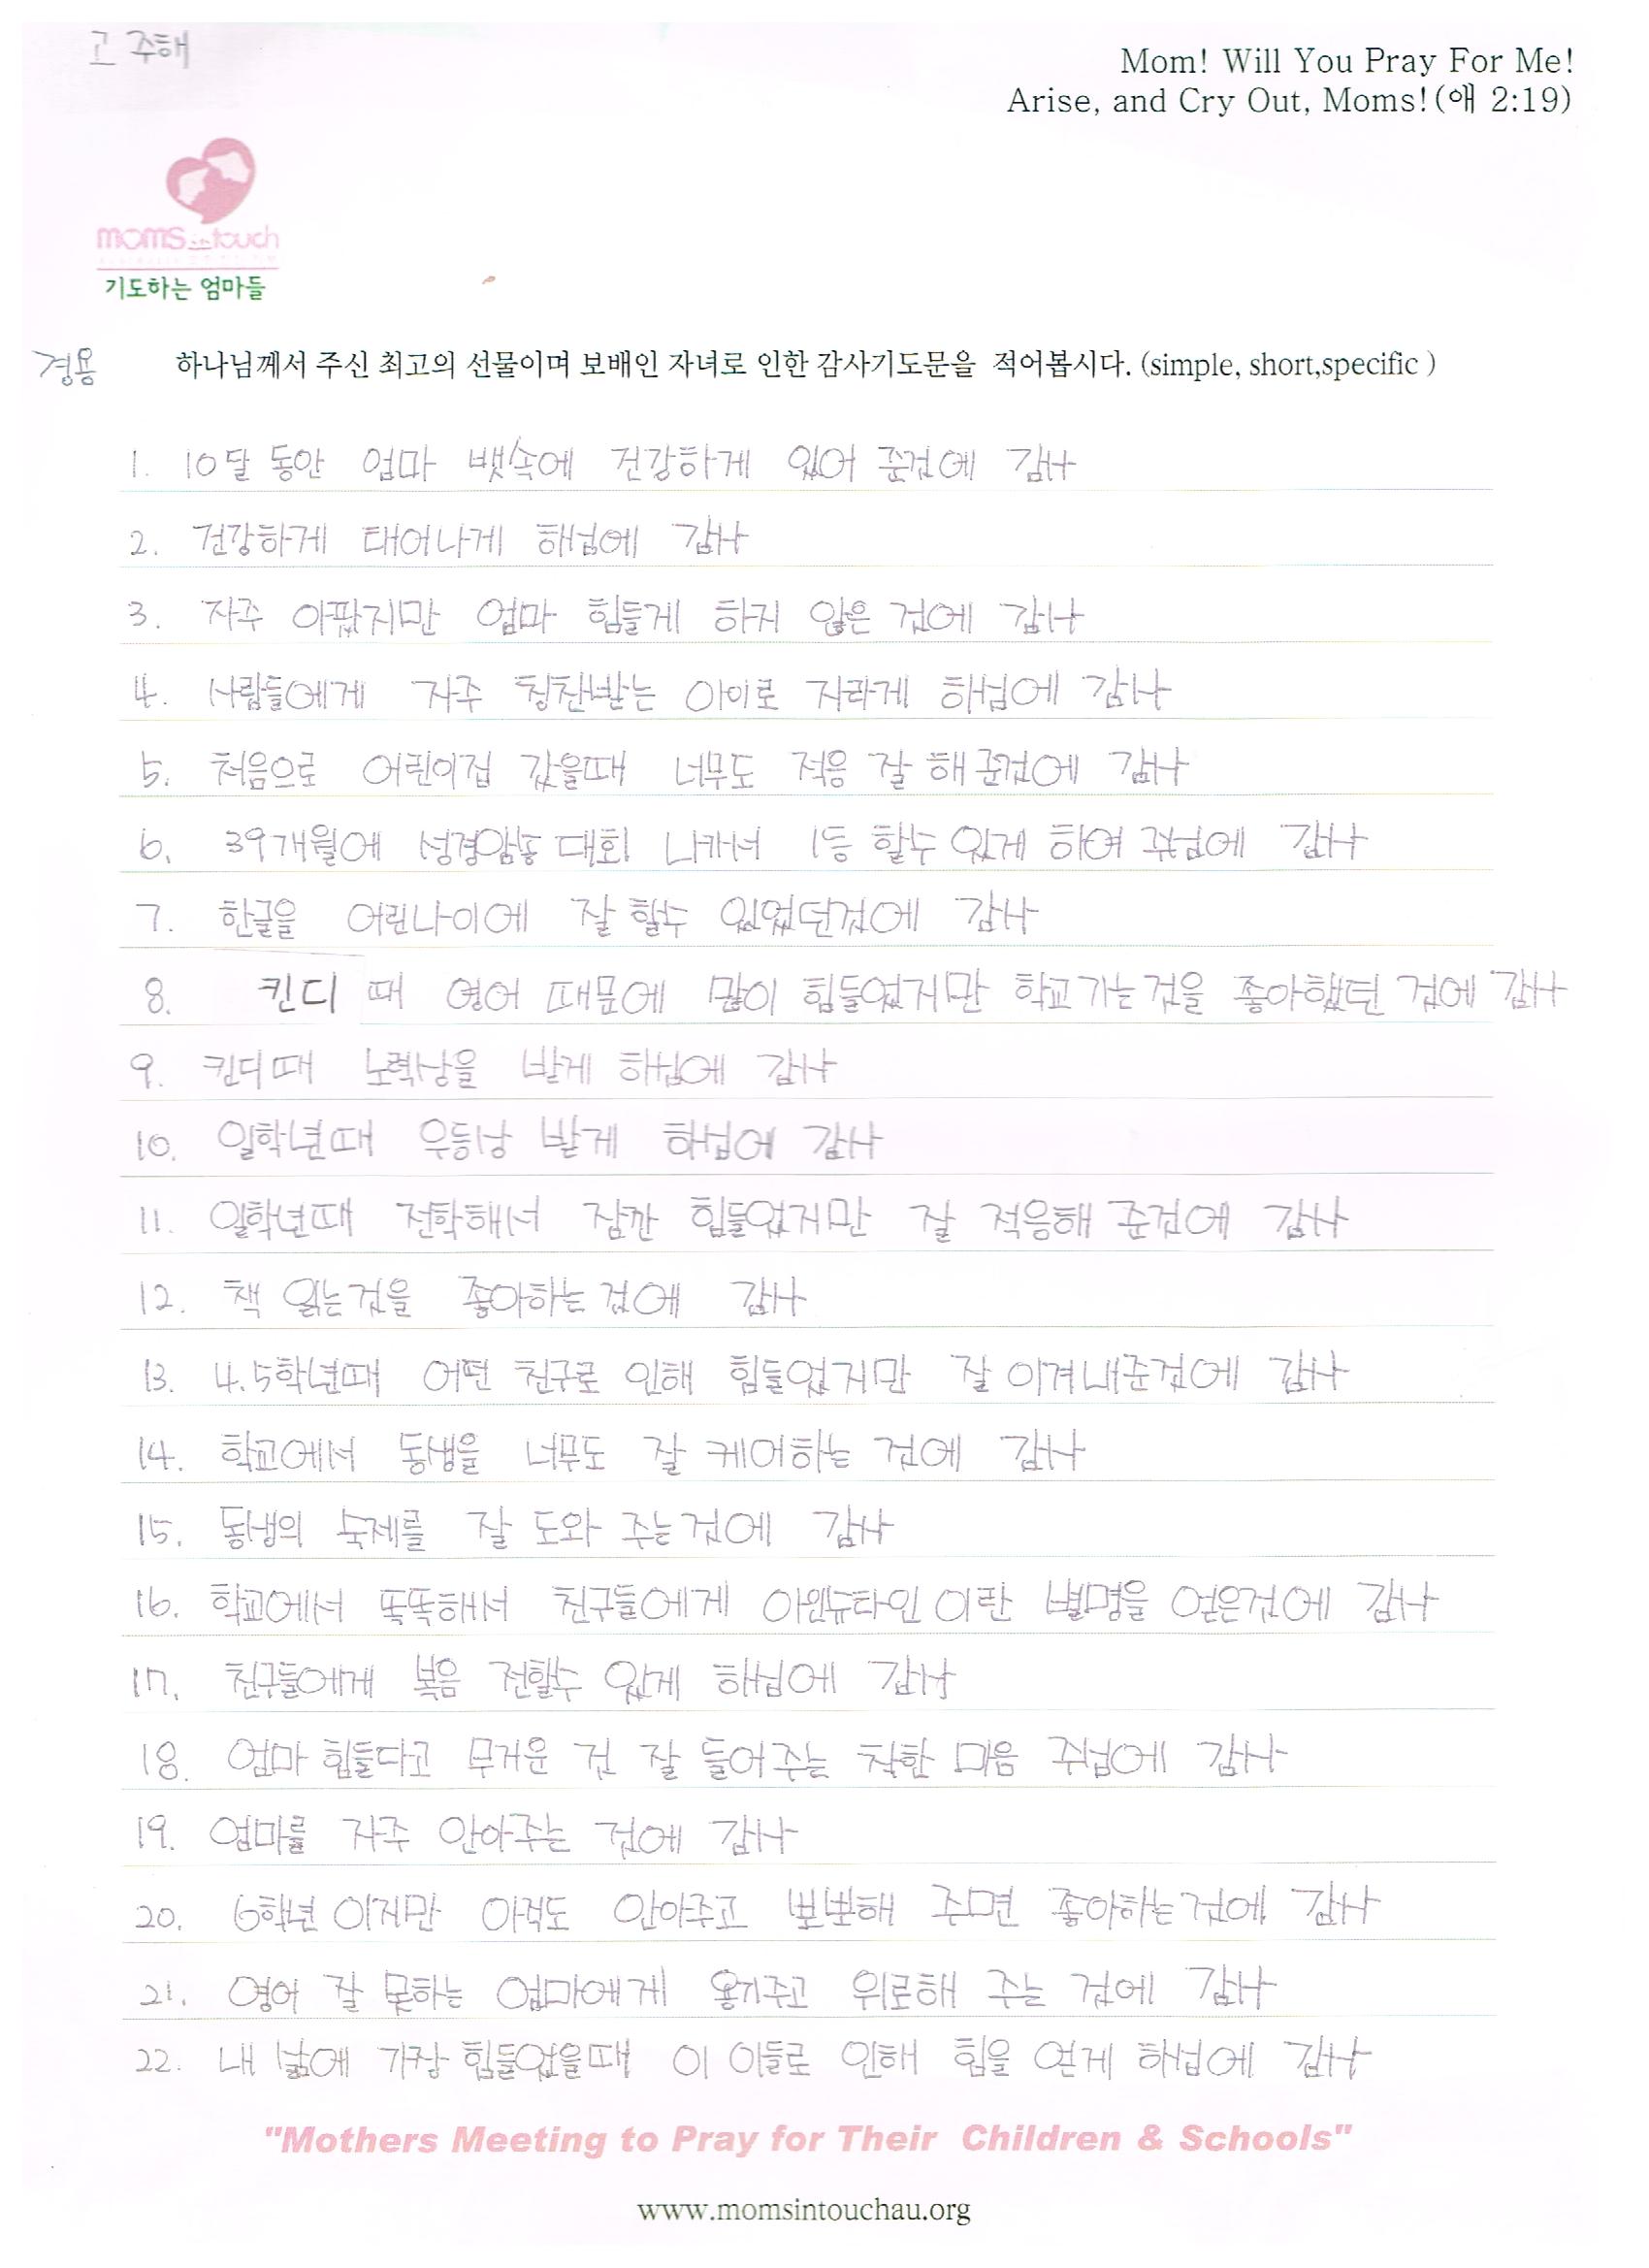 고 주해
Mom! Will You Pray For Me!
Arise, and Cry Out, Moms!(애 2:19)
moms in touch
기도하는 엄마들
경용
하나님께서 주신 최고의 선물이며 보배인 자녀로 인한 감사기도문을 적어봅시다. (simple, short,specific )
1. 10달 동안 엄마 뱃속에 건강하게 있어 준것에 감사
2. 건강하게 태어나게 해심에 감사
3. 자주 아팠지만 엄마 힘들게 하지 않은 것에 감사
4. 사람들에게 자주 칭찬받는 아이로 자라게 하심에 감사
5. 처음으로 어린이집 갔을때 너무도 적응 잘 해 준것에 감사
6. 39개월에 성경암송 대회 나가서 1등 할수 있게 하여 주심에 감사
7. 한글을 어린나이에 잘 할수 있었던것에 감사
8. 킨디 때 영어 때문에 많이 힘들었지만 학교가는것을 좋아했던 것에 감사
9. 킨디때 노력상을 받게 하심에 감사
10. 일학년때 우등상 받게 하심에 감사
11. 일학년때 전학해서 잠깐 힘들었지만 잘 적응해 준것에 감사
12. 책 읽는것을 좋아하는것에 감사
13. 4.5학년때 어떤 친구로 인해 힘들었지만 잘 이겨내준것에 감사
14. 학교에서 동생을 너무도 잘 케어하는 것에 감사
15. 동생의 숙제를 잘 도와 주는것에 감사
16. 학교에서 똑똑해서 친구들에게 아인슈타인 이란 별명을 얻은것에 감사
17. 친구들에게 복음 전할수 있게 하심에 감사
18. 엄마 힘들다고 무거운 건 잘 들어주는 착한 마음 주심에 감사
19. 엄마를 자주 안아주는 것에 감사
20. 6학년 이지만 아직도 안아주고 뽀뽀해 주면 좋아하는것에 감사
21. 영어 잘 못하는 엄마에게 용기주고 위로해 주는 것에 감사
22. 내 삶에 가장 힘들었을때 이 아들로 인해 힘을 얻게 하심에 감사
"Mothers Meeting to Pray for Their Children & Schools"
www.momsintouchau.org